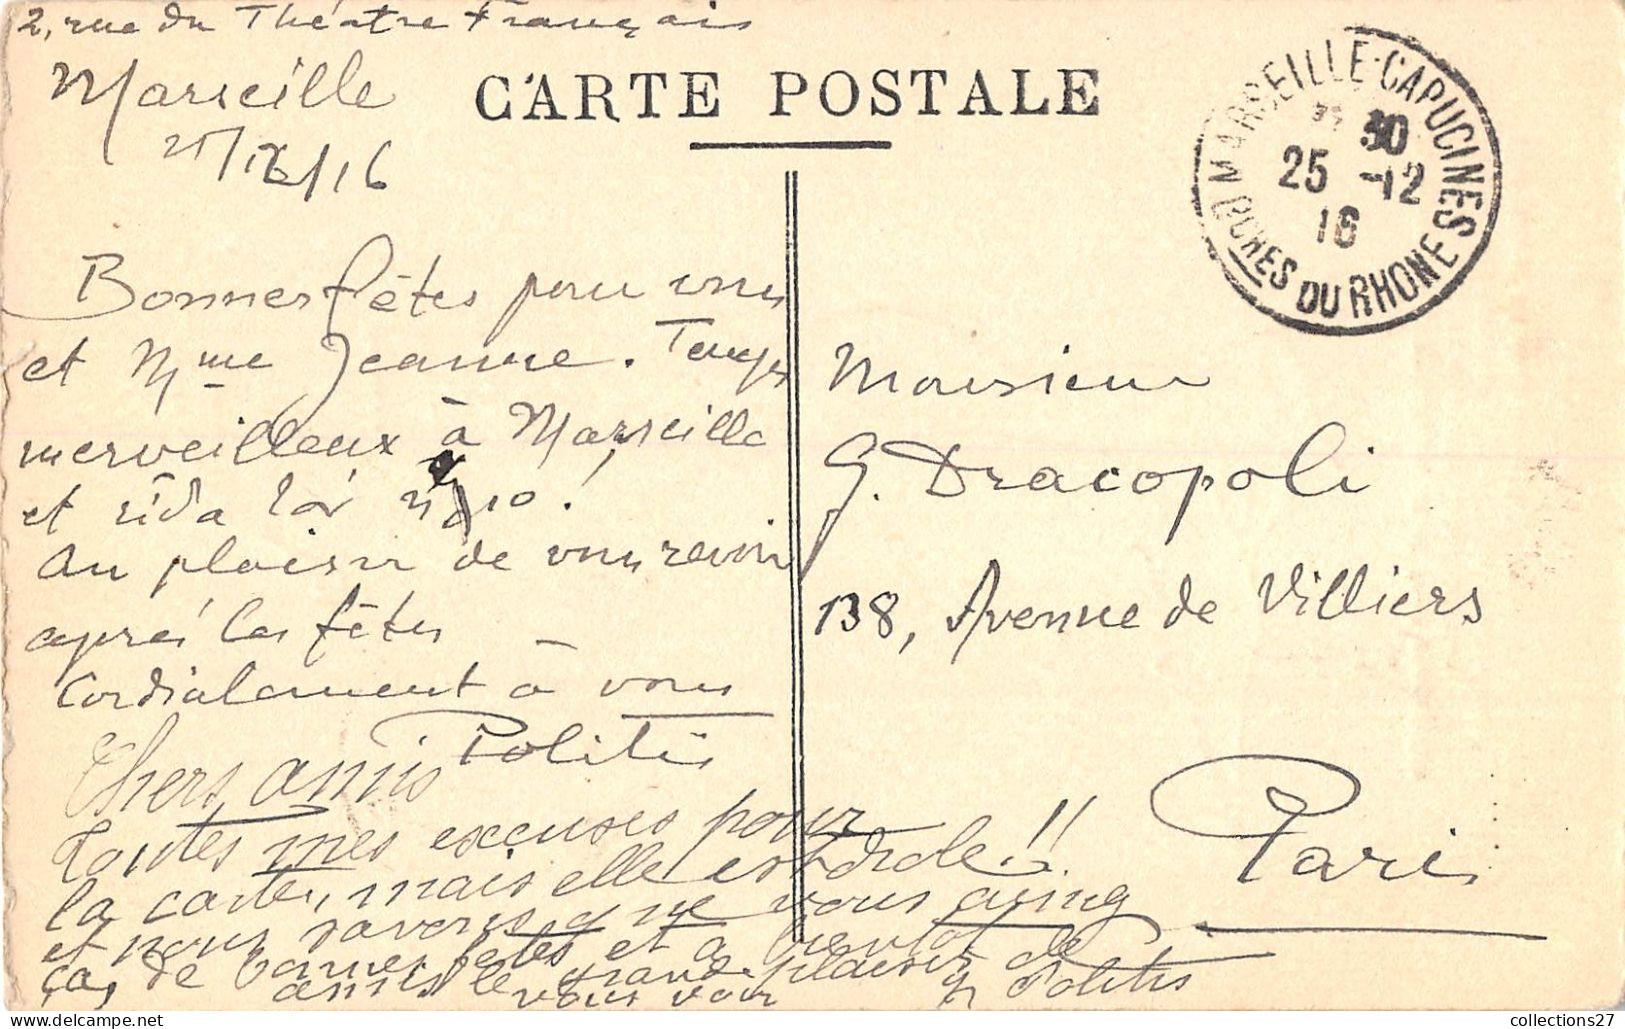 2, rue du Théatre Français
Marseille
25/12/16
CARTE POSTALE
MARSEILLE-CAPUCINES
30
25 -12
16
BCHES DU RHONE
Bonnes fêtes pour vous
et Mme Jeanne. Temps
merveilleux à Marseille
et
Au plaisir de vous revoir
après les fêtes
Cordialement à vous
Politis
Chers amis
Toutes mes excuses pour
la carte, mais elle est drole!!
et nous savons que ne vous aimez
ça, de bonnes fetes et a bientot
amis le grand plaisir de
vous voir
Politis
Monsieur
G. Dracopoli
138, Avenue de Villiers
Paris
collections27